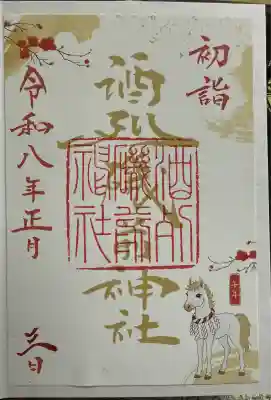 初詣
酒列磯前神社
酒列
磯前
神社
令和八年正月
三日
午年